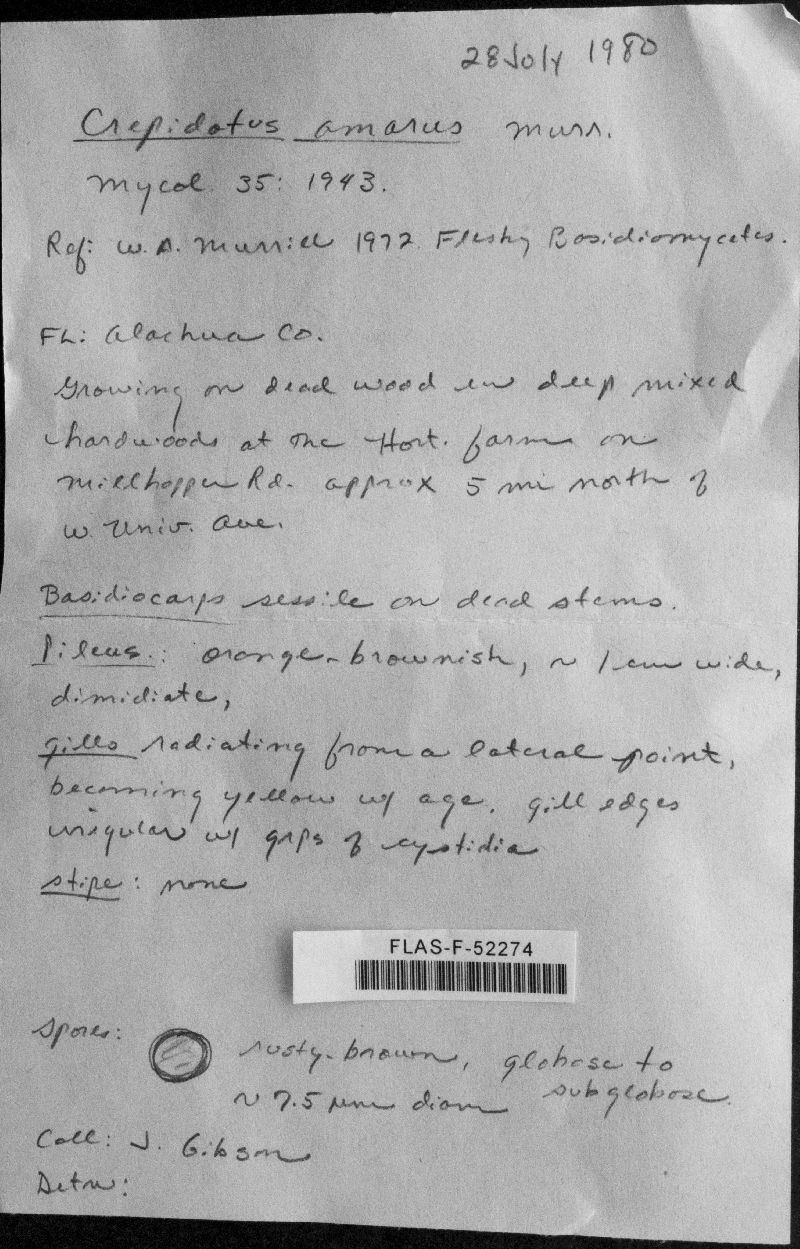 28 July 1980
Crepidotus amarus Murr.
Mycol. 35: 1943.
Ref: W. A. Murrill 1972 Fleshy Basidiomycetes.
FL: Alachua Co.
Growing on dead wood in deep mixed
hardwoods at the Hort. farm on
Millhopper Rd. approx 5 mi north of
W. Univ. Ave.
Basidiocarps sessile on dead stems.
Pileus: orange-brownish, ~ 1 cm wide,
dimidiate,
gills radiating from a lateral point,
becoming yellow w/ age. gill edges
irregular w/ grps of cystidia
stipe: none
FLAS-F-52274
Spores: rusty-brown, globose to
~ 7.5 µm diam subglobose.
Coll: J. Gibson
Detm: